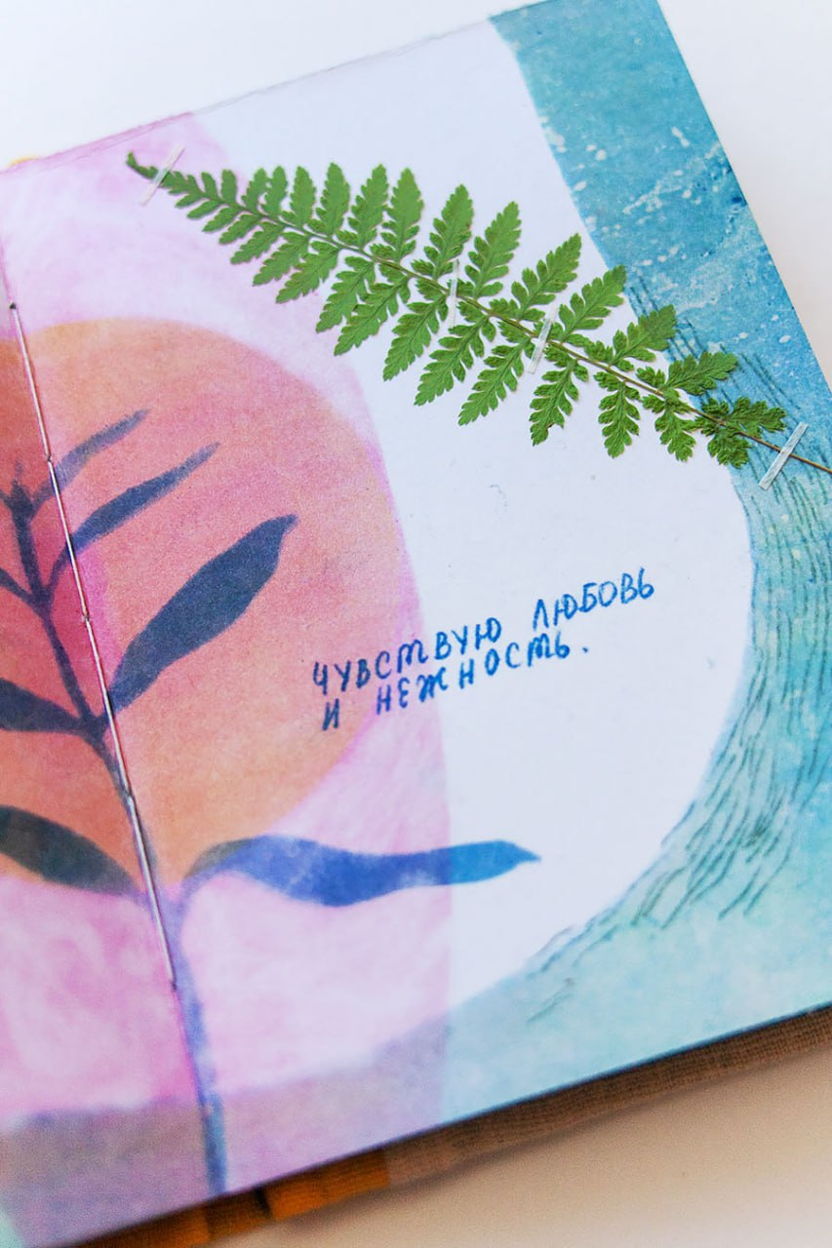 ЧУВСТВУЮ ЛЮБОВЬ
И НЕЖНОСТЬ.